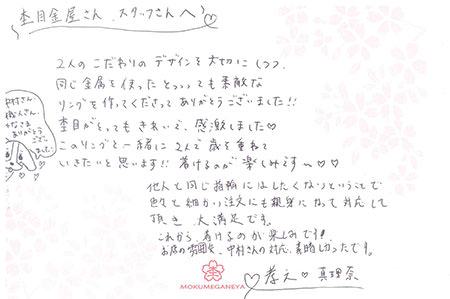 杢目金屋さん、スタッフさんへ♡
2人のこだわりのデザインを大切にしつつ、
同じ金属を使ったとっっっても素敵な
リングを作ってくださってありがとうございました!!
杢目がとってもきれいで、感激しました♡
このリングと一緒に2人で歳を重ねて
いきたいと思います!! 着けるのが楽しみです〜♡♡
中村さん、
職人さん、
ありがとう
ござい
ました。
他人と同じ指輪にはしたくないということで
色々と細かい注文にも親身になって対応して
頂き、大満足です。
これから着けるのが楽しみです!
お店の雰囲気、中村さんの対応、素晴しかったです。
♡孝之♡真理奈
MOKUMEGANEYA